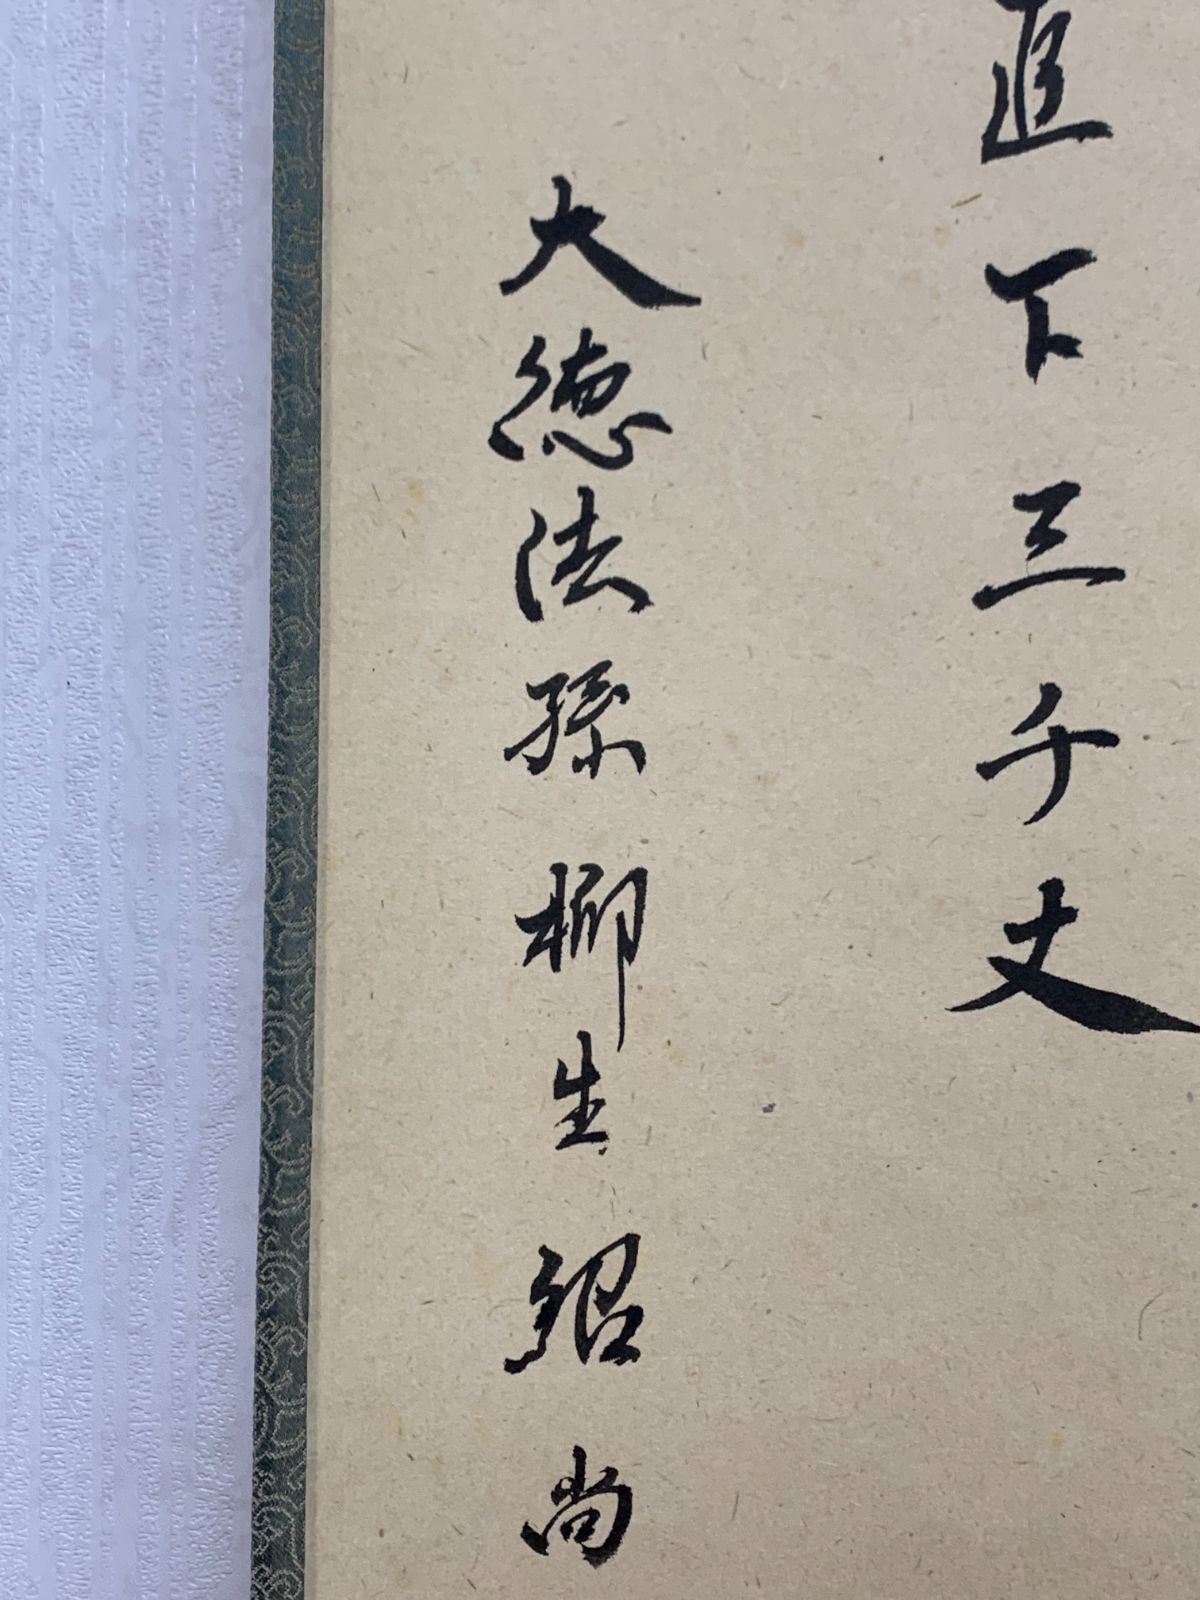 直下三千丈
大徳法孫柳生紹尚